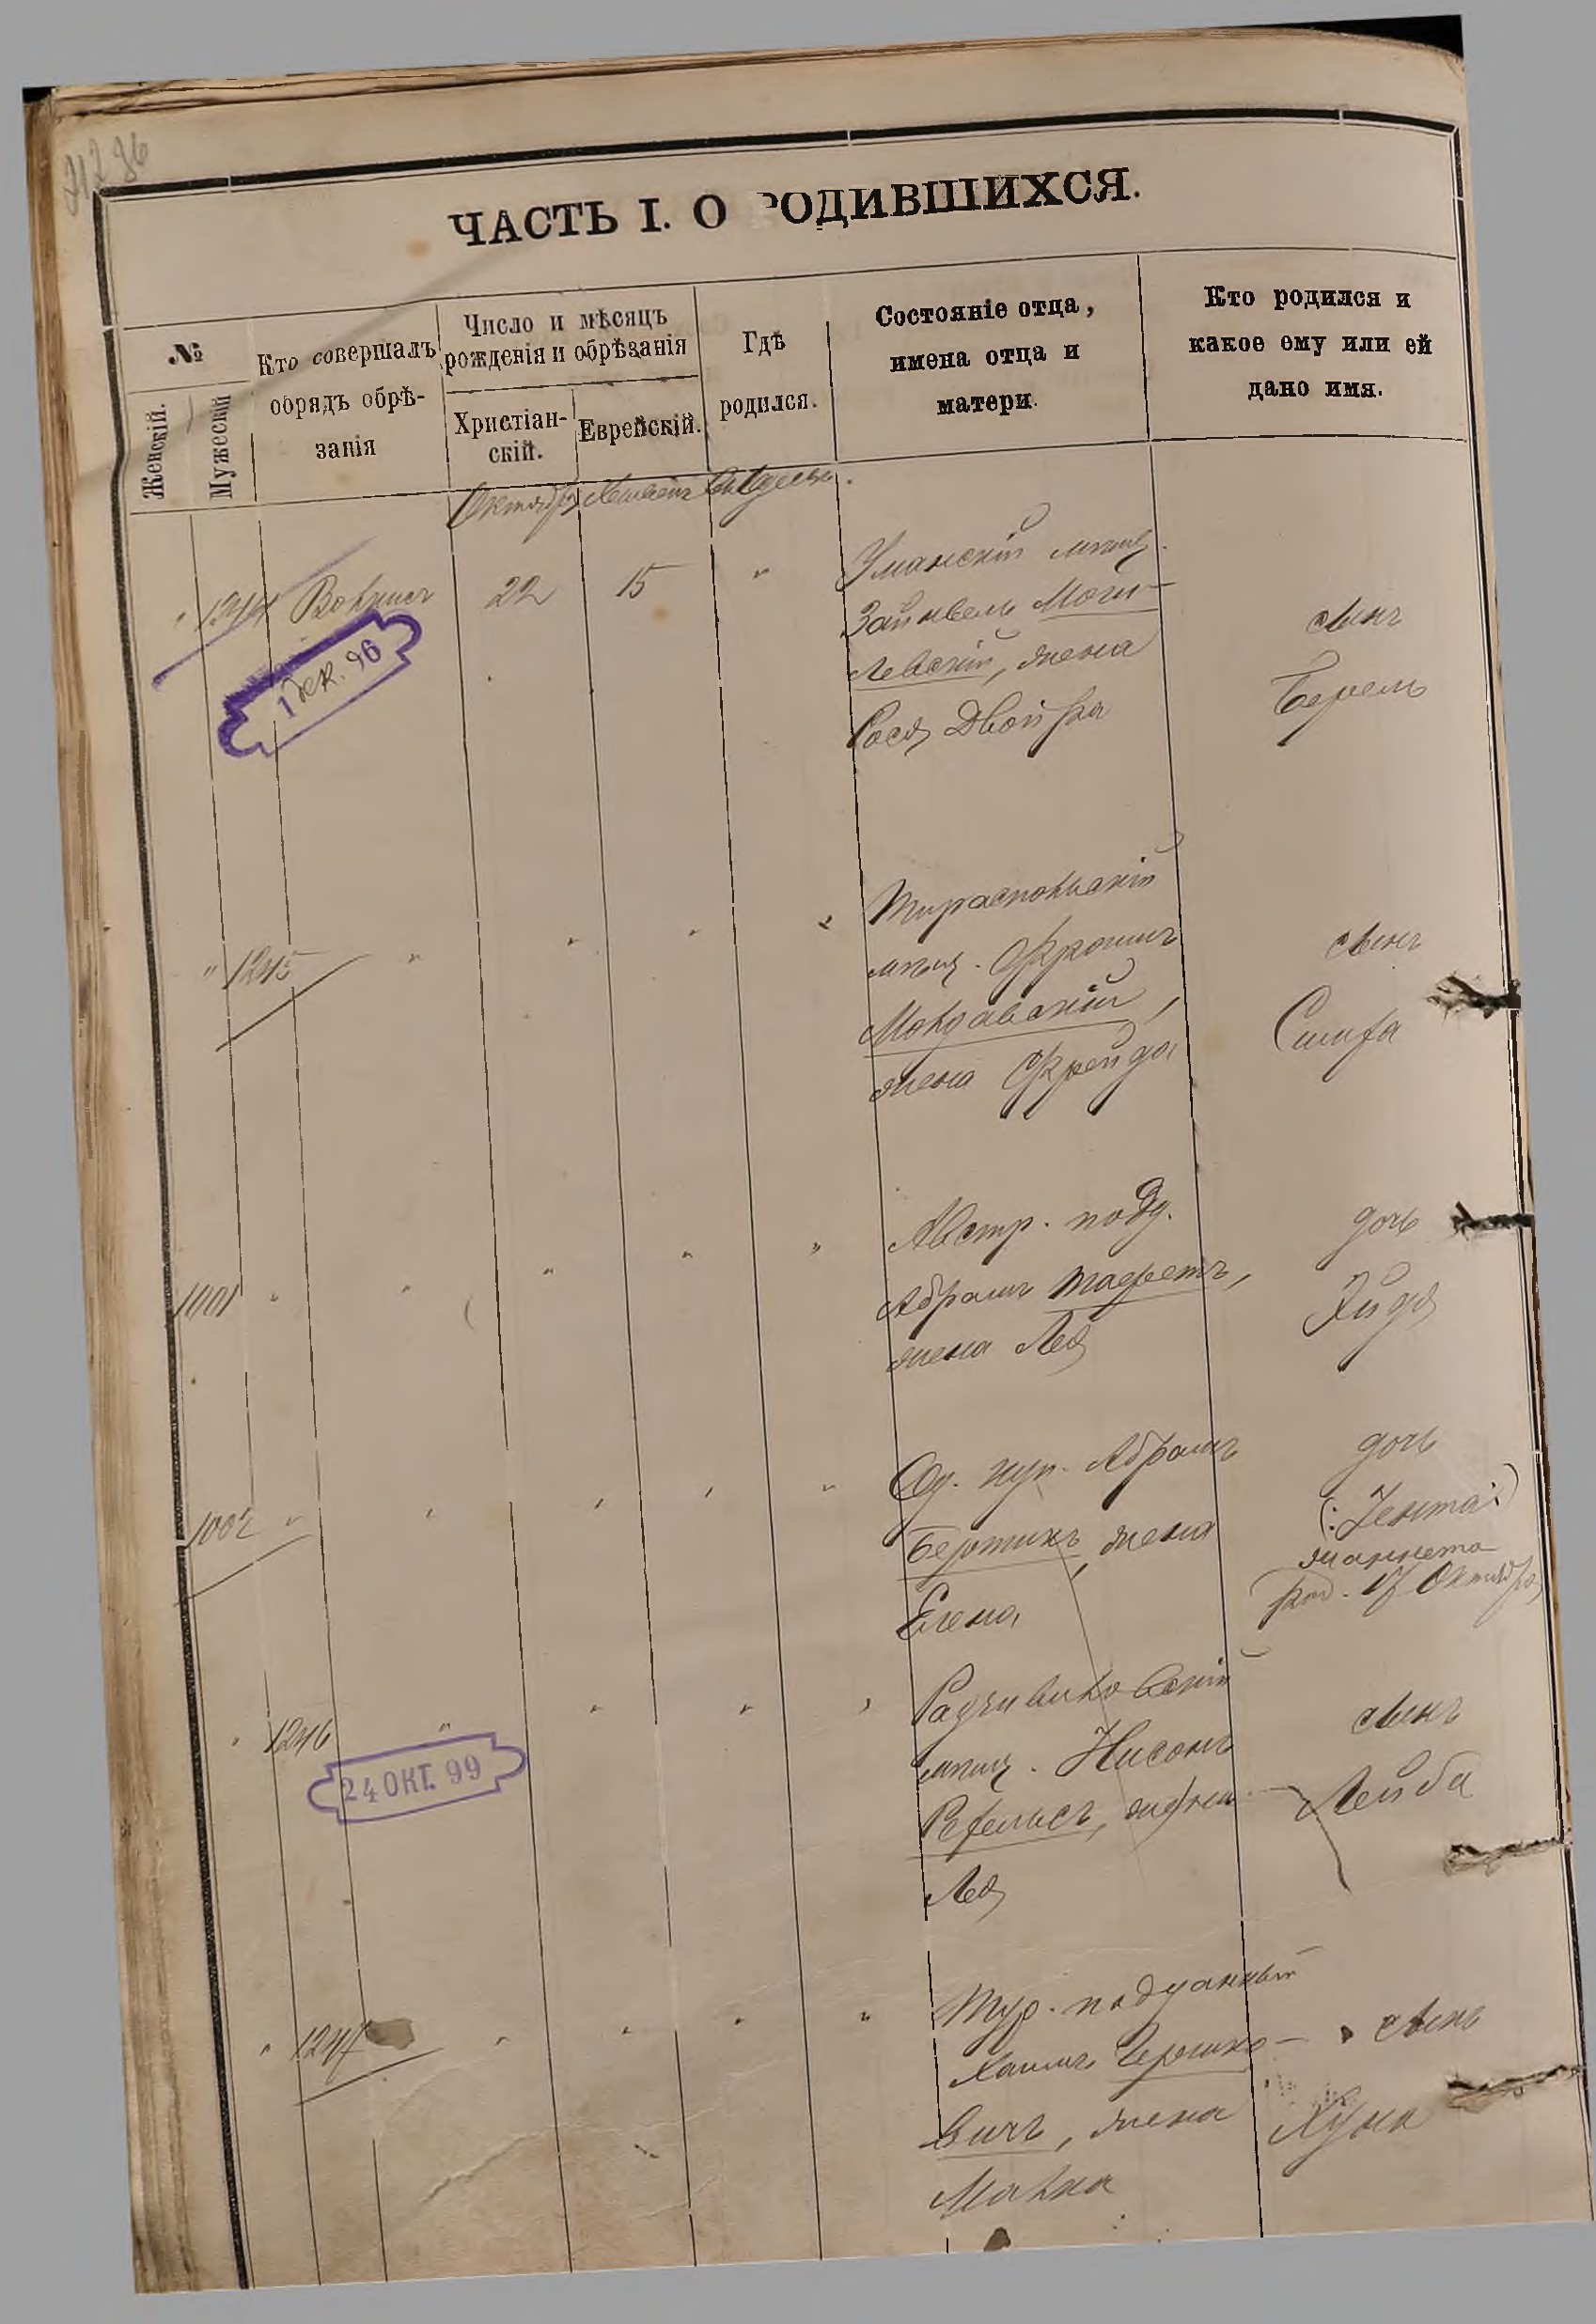 ЧАСТЬ I. О РОДИВШИХСЯ.
№
Женскій.
Мужескій
Кто совершалъ
обрядъ обрѣ-
занія
Число и мѣсяцъ
рожденія и обрѣзанія
Христіан-
скій.
Еврейскій.
Гдѣ
родился.
Состояніе отца,
имена отца и
матери.
Кто родился и
какое ему или ей
дано имя.
Октябрь Хешвенъ Въ Одессѣ.
" 1244 22 15 "
1 дек. 96
Уманскій мѣщ.
Зайнвель Моги-
левскій, жена
Рося Двойра
сынъ
Берель
" 1245 " " " "
Тираспольскій
мѣщ. Фроимъ
Молдавскій,
жена Фрейда
сынъ
Симха
1001 " " " " "
Австр. подд.
Абрамъ Таферетъ,
жена Лея
дочь
Хиня
1002 " " " " "
Од. куп. Абрамъ
Бертикъ, жена
Елена
дочь
(:Јента:)
жаннета
род. 17 Октября
" 1246 " " " "
24 ОКТ. 99
Радзивиловскій
мѣщ. Нисонъ
Рефельсъ, жена
Лея
сынъ
Лейба
" 1247 " " " "
Тур. подданный
Хаимъ Гершко-
вичъ, жена
Малка
сынъ
Хуна